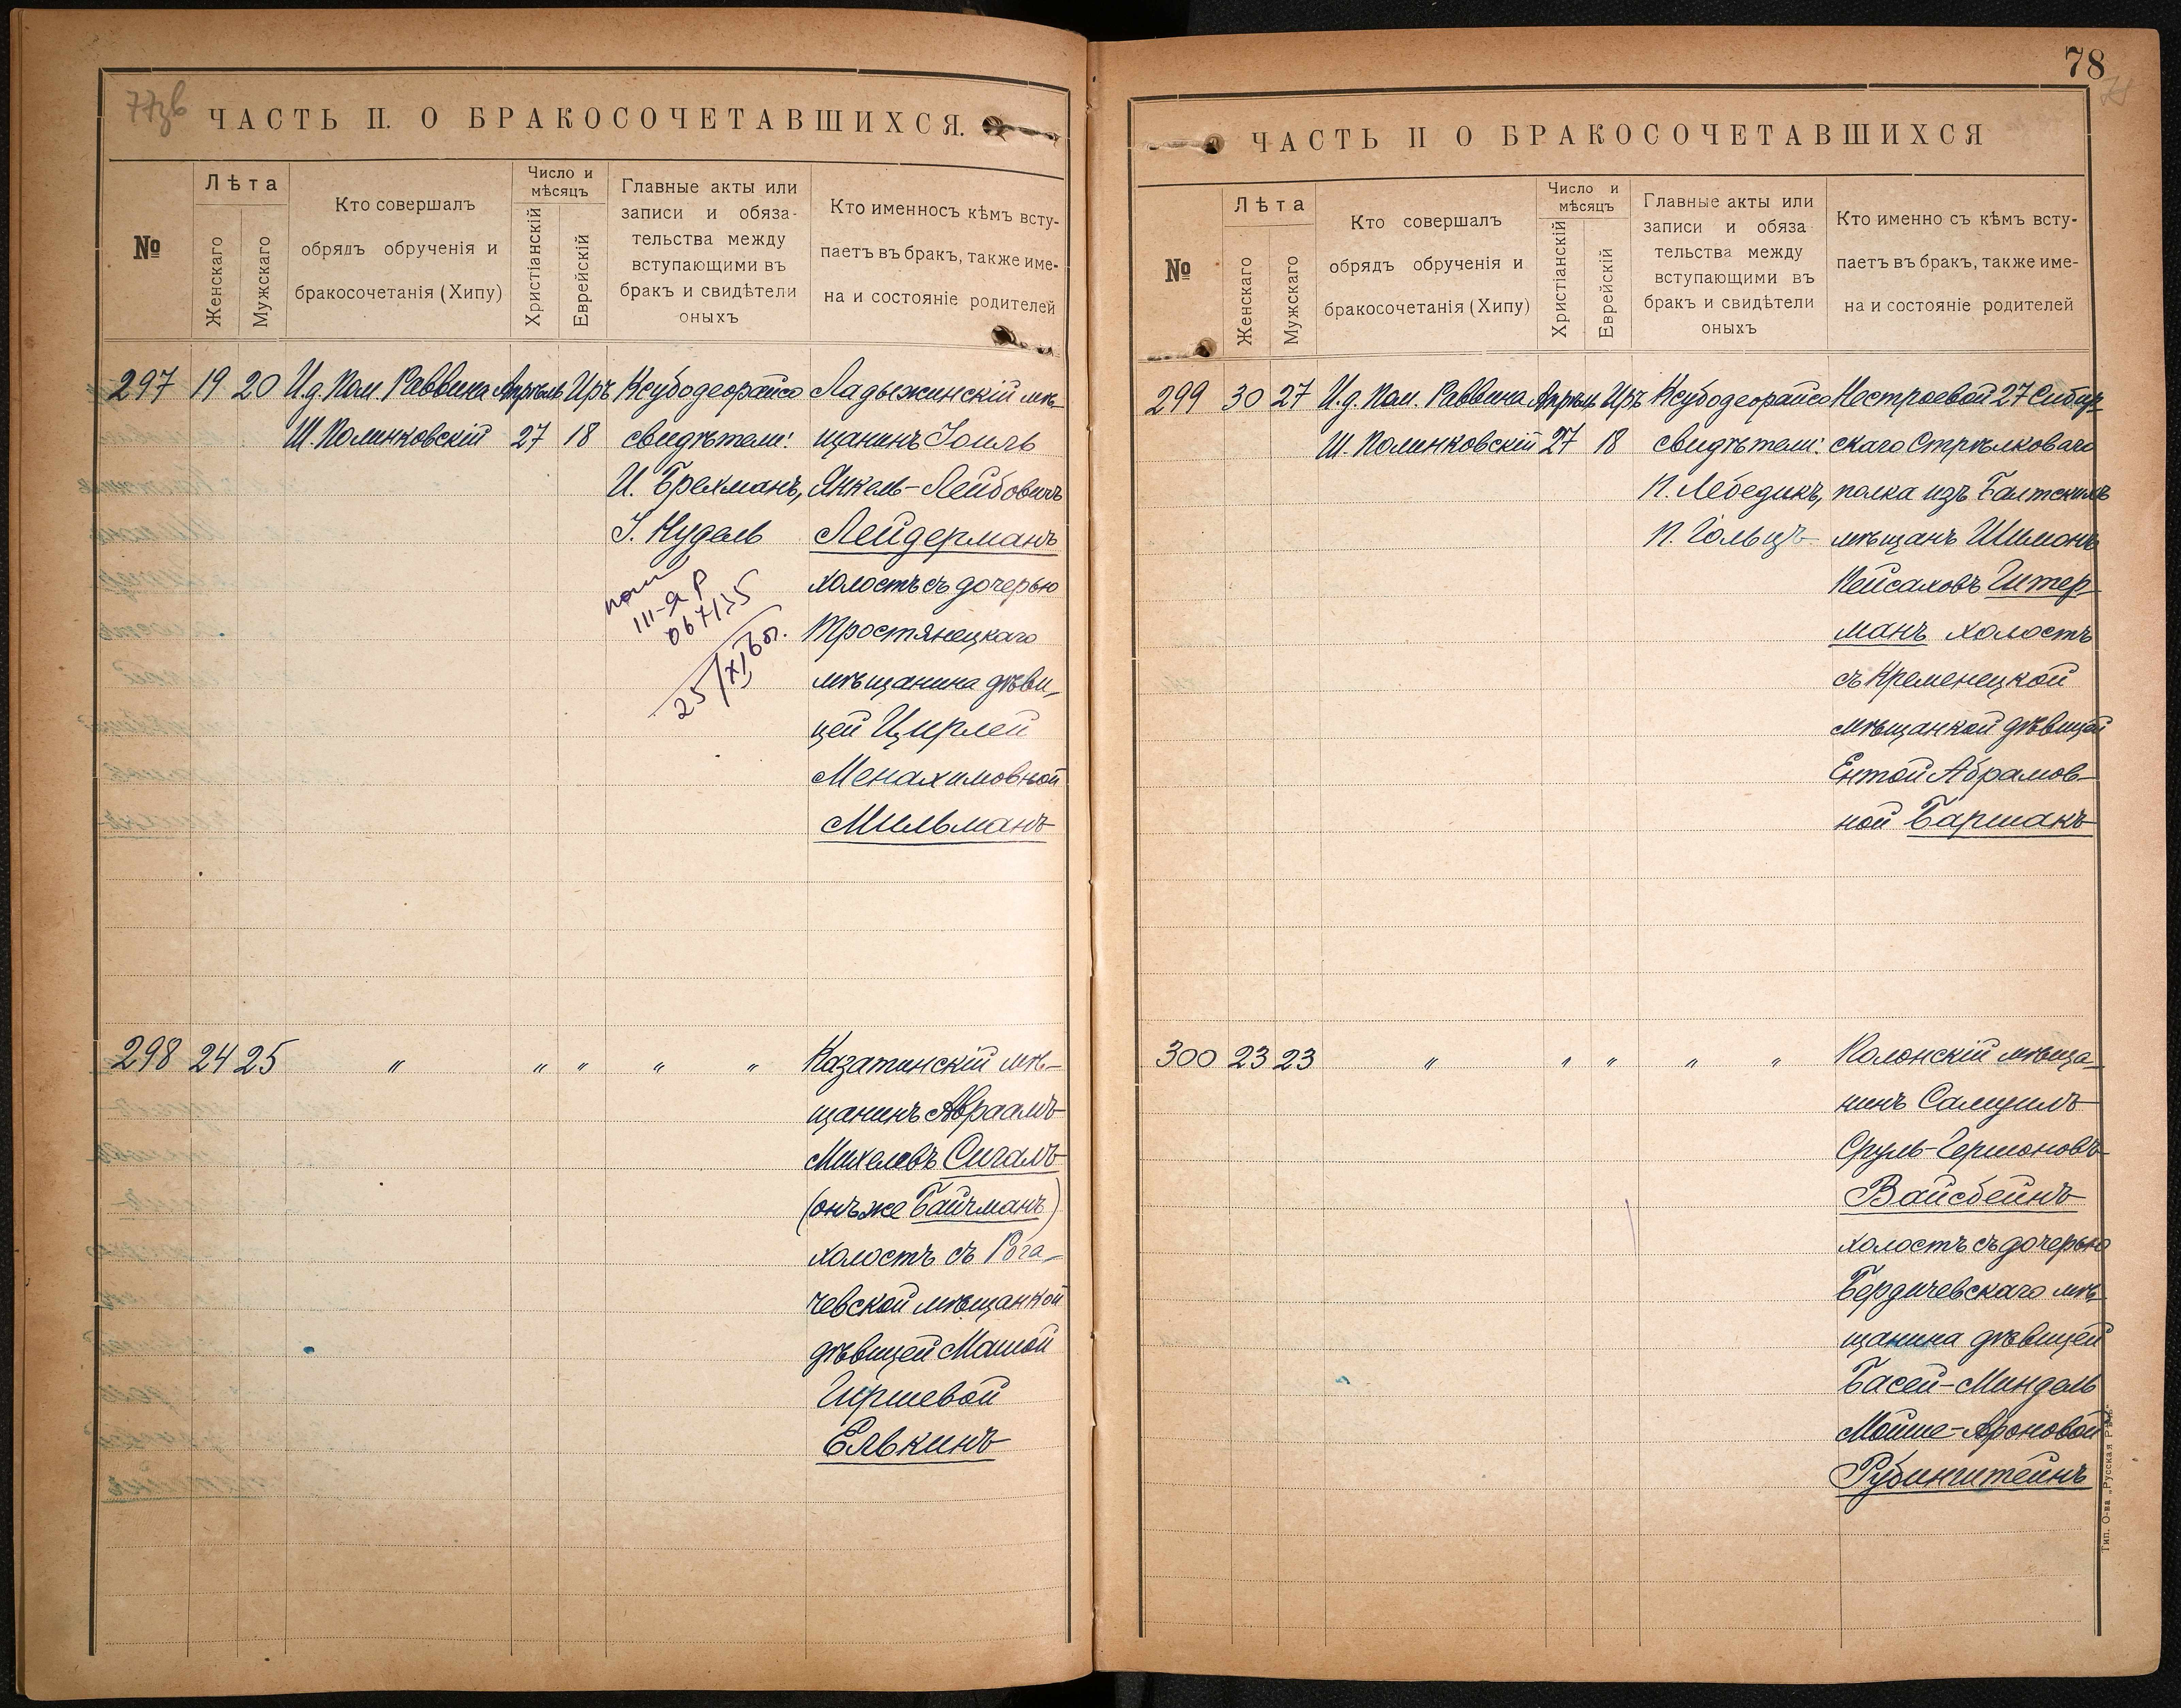 77зв
ЧАСТЬ II. О БРАКОСОЧЕТАВШИХСЯ.
№
Лѣта
Женскаго
Мужскаго
Кто совершалъ
обрядъ обрученія и
бракосочетанія (Хипу)
Число и
мѣсяцъ
Христіанскій
Еврейскій
Главные акты или
записи и обяза-
тельства между
вступающими въ
бракъ и свидѣтели
оныхъ
Кто именносъ кѣмъ всту-
паетъ въ бракъ, также име-
на и состояніе родителей
297 19 20
И.д. Пом. Раввина
Ш. Полинковскій
Апрѣль
27
Иръ
18
Ксубодеорайсо
свидѣтели:
И. Брехманъ,
І. Нудель
III-Я Р
067135
25/XI 60г.
Ладыжинскій мѣ-
щанинъ Іоиль
Янкель-Лейбовичъ
Лейдерманъ
холостъ съ дочерью
Тростянецкаго
мѣщанина дѣви-
цей Цирлей
Менахимовной
Мильманъ
298 24 25 " " " " "
Казатинскій мѣ-
щанинъ Авраамъ
Михелевъ Сигалъ
(онъ же Байчманъ)
холостъ съ Рога-
чевской мѣщанкой
дѣвицей Машой
Гиршевой
Елькинъ
78
ЧАСТЬ II О БРАКОСОЧЕТАВШИХСЯ
№
Лѣта
Женскаго
Мужскаго
Кто совершалъ
обрядъ обрученія и
бракосочетанія (Хипу)
Число и
мѣсяцъ
Христіанскій
Еврейскій
Главные акты или
записи и обяза
тельства между
вступающими въ
бракъ и свидѣтели
оныхъ
Кто именно съ кѣмъ всту-
паетъ въ бракъ, также име-
на и состояніе родителей
299 30 27
И.д. Пом. Раввина
Ш. Полинковскій
Апрѣль
27
Иръ
18
Ксубодеорайсо
свидѣтели:
П. Лебедикъ,
П. Гольцъ
Нестроевой 27 Сибир-
скаго Стрѣлковаго
полка изъ Балтскихъ
мѣщанъ Шимонъ
Пейсаховъ Штер-
манъ холостъ
съ Кременецкой
мѣщанкой дѣвицей
Ентой Абрамов-
ной Баршакъ
300 23 23 " " " " "
Полонскій мѣща-
нинъ Самуилъ
Сруль-Гершоновъ
Вайсбейнъ
холостъ съ дочерью
Бердичевскаго мѣ-
щанина дѣвицей
Басей-Миндель
Мойше-Ароновой
Рубинштейнъ
Тип. О-ва „Русская Рѣчь“